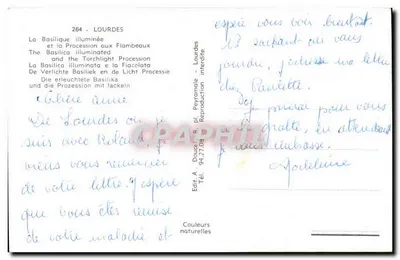 284 - LOURDES
La Basilique illuminée
et la Procession aux Flambeaux
The Basilica illuminated
and the Torchlight Procession
La Basilica illuminata e la Fiaccolata
De Verlichte Basiliek en de Licht Processie
Die erleuchtete Basilika
und die Prozession mit fackeln
Chère
De Lourdes où je
suis avec Roland, je
viens vous remercier
de votre lettre. J'espère
que vous êtes remise
de votre maladie et
Couleurs
naturelles
Edit. A. pl. Peyramale - Lourdes
Tél. 94.27.08 Reproduction interdite
CPARAMA
espère vous voir bientôt.
sachant où vous
joindre, j'adresse ma lettre
chez Paulette.
Je prierai pour vous
à la grotte, en attendant
je vous embrasse.
Madeleine